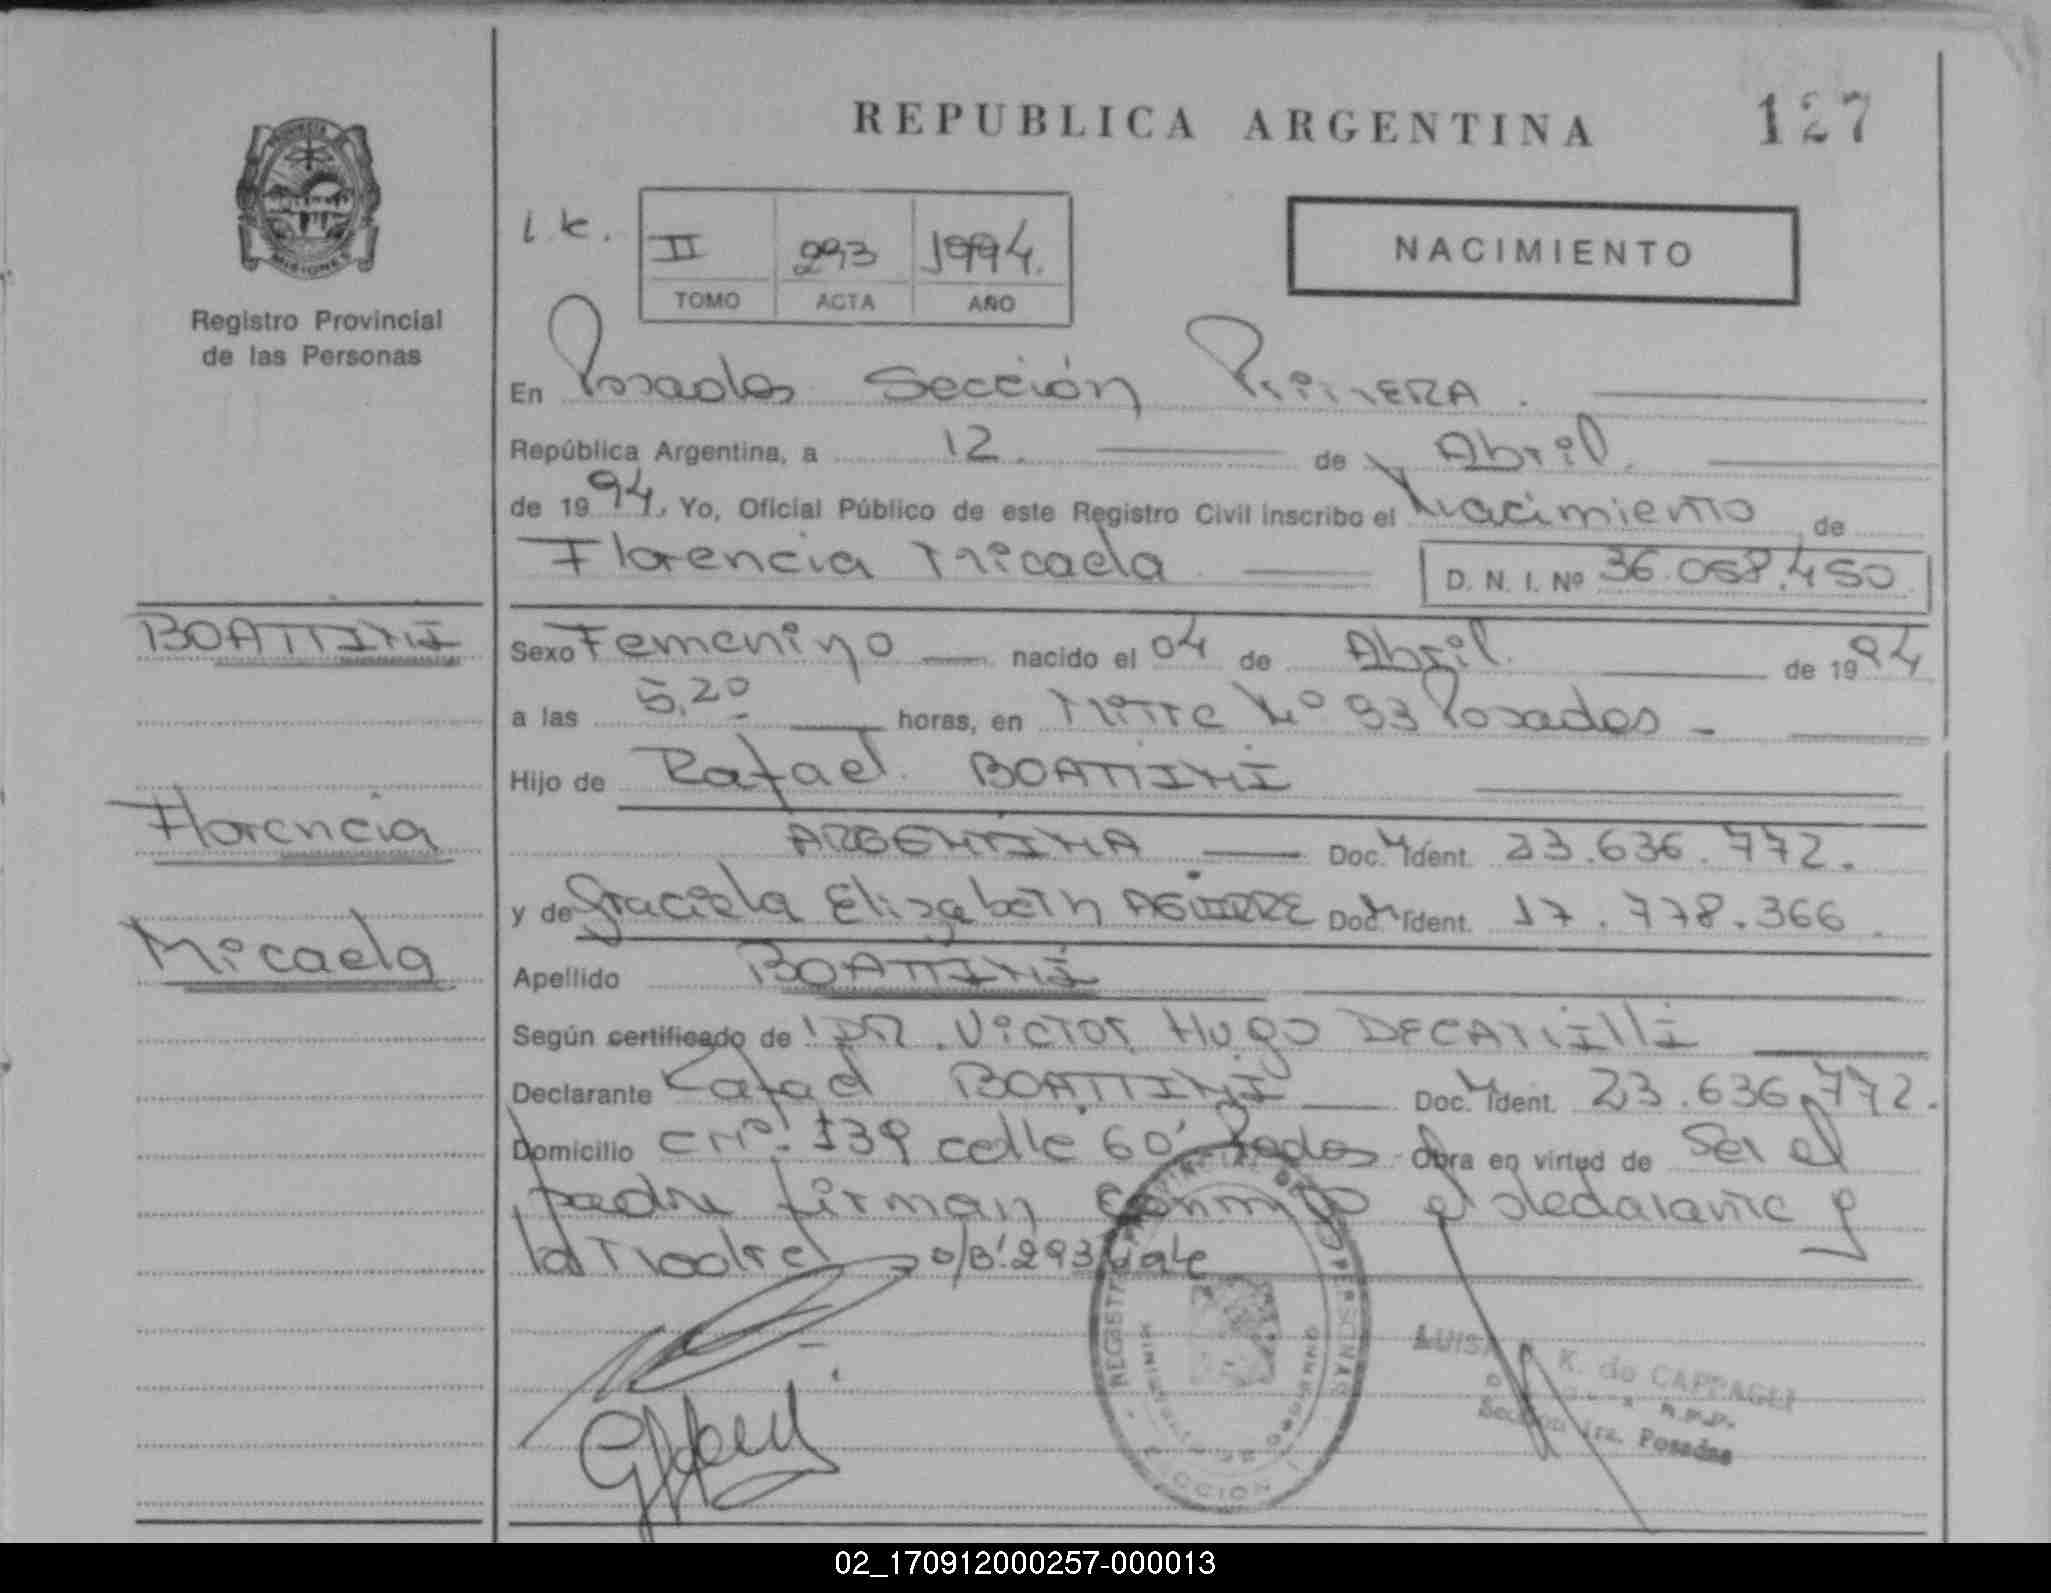 REPUBLICA ARGENTINA
127
MISIONES
Registro Provincial
de las Personas
II 293 1994.
TOMO ACTA AÑO
NACIMIENTO
En Posadas Sección PRIMERA.
República Argentina, a 12. de Abril.
de 1994. Yo, Oficial Público de este Registro Civil inscribo el Nacimiento de
Florencia Micaela D. N. I. Nº 36.058.450
BOATTINI
Florencia
Micaela
Sexo Femenino nacido el 04 de Abril. de 1994
a las 5,20 horas, en Mitre Nº 93 Posadas -
Hijo de Rafael BOATTINI
ARGENTINA Doc. Ident. 23.636.772.
y de Graciela Elizabeth AGUIRRE Doc. Ident. 17.778.366
Apellido BOATTINI
Según certificado de DR. Victor Hugo
Declarante Rafael BOATTINI Doc. Ident. 23.636.772.
Domicilio 139 calle 60 Obra en virtud de Ser el
padre firman conmigo el declarante y
la Madre 293
K. de CAPPAGLI
Sección 1ra. Posadas
02_170912000257-000013